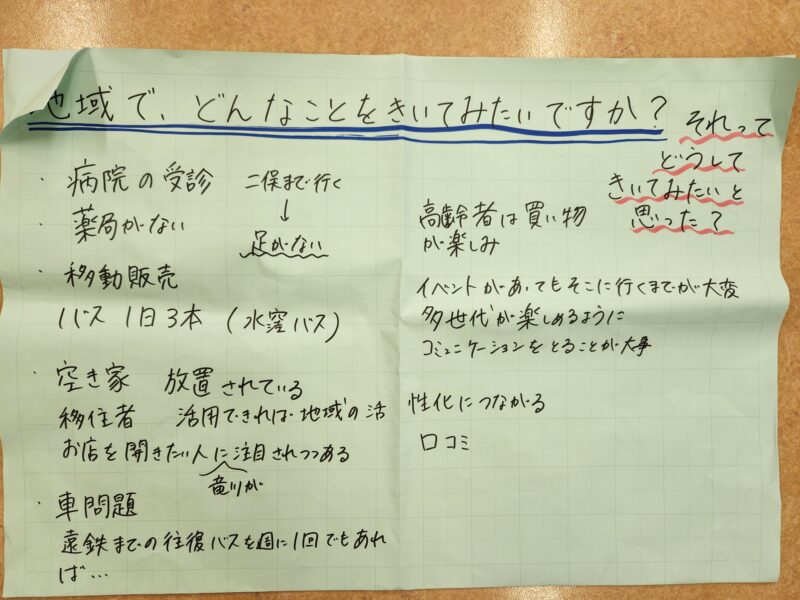 地域で、どんなことをきいてみたいですか？
それって
どうして
きいてみたいと
思った？
・病院の受診 二俣まで行く
↓
・薬局がない 足がない
・移動販売
バス 1日3本 (水窪バス)
・空き家 放置されている
移住者 活用できれば地域の活
お店を開きたい人に注目されつつある
竜川が
・車問題
遠鉄までの往復バスを週に1回でもあれ
ば…
高齢者は買い物
が楽しみ
イベントがあってもそこに行くまでが大変
多世代が楽しめるように
コミュニケーションをとることが大事
性化につながる
口コミ